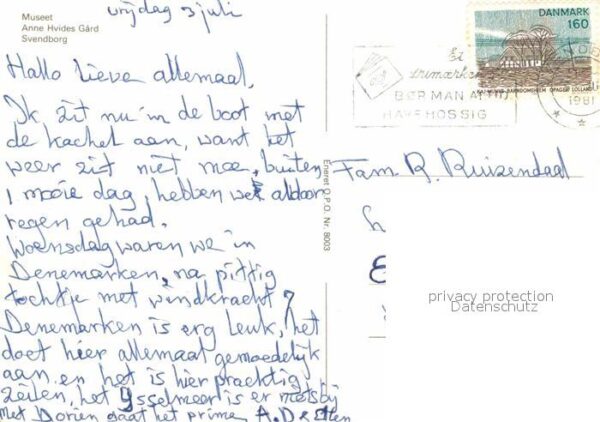 Museet
Anne Hvides Gård
Svendborg
vrijdag 3 juli
Hallo lieve allemaal,
Ik zit nu in de boot met
de kachel aan, want het
weer zit niet mee, buiten
1 mooie dag, hebben we aldoor
regen gehad.
Woensdag waren we in
Denemarken, na pittig
tochtje met windkracht 7
Denemarken is erg leuk, het
doet hier allemaal gemoedelijk
aan en het is hier prachtig
zeilen, het IJsselmeer is er niets bij
Met Dorien gaat het prima A.D & Ellen
Eneret O.P.O. Nr. 8003
DANMARK
160
BØR MAN ALTID
HAVE HOS SIG
1981
Fam R. Ruizendaal
privacy protection
Datenschutz